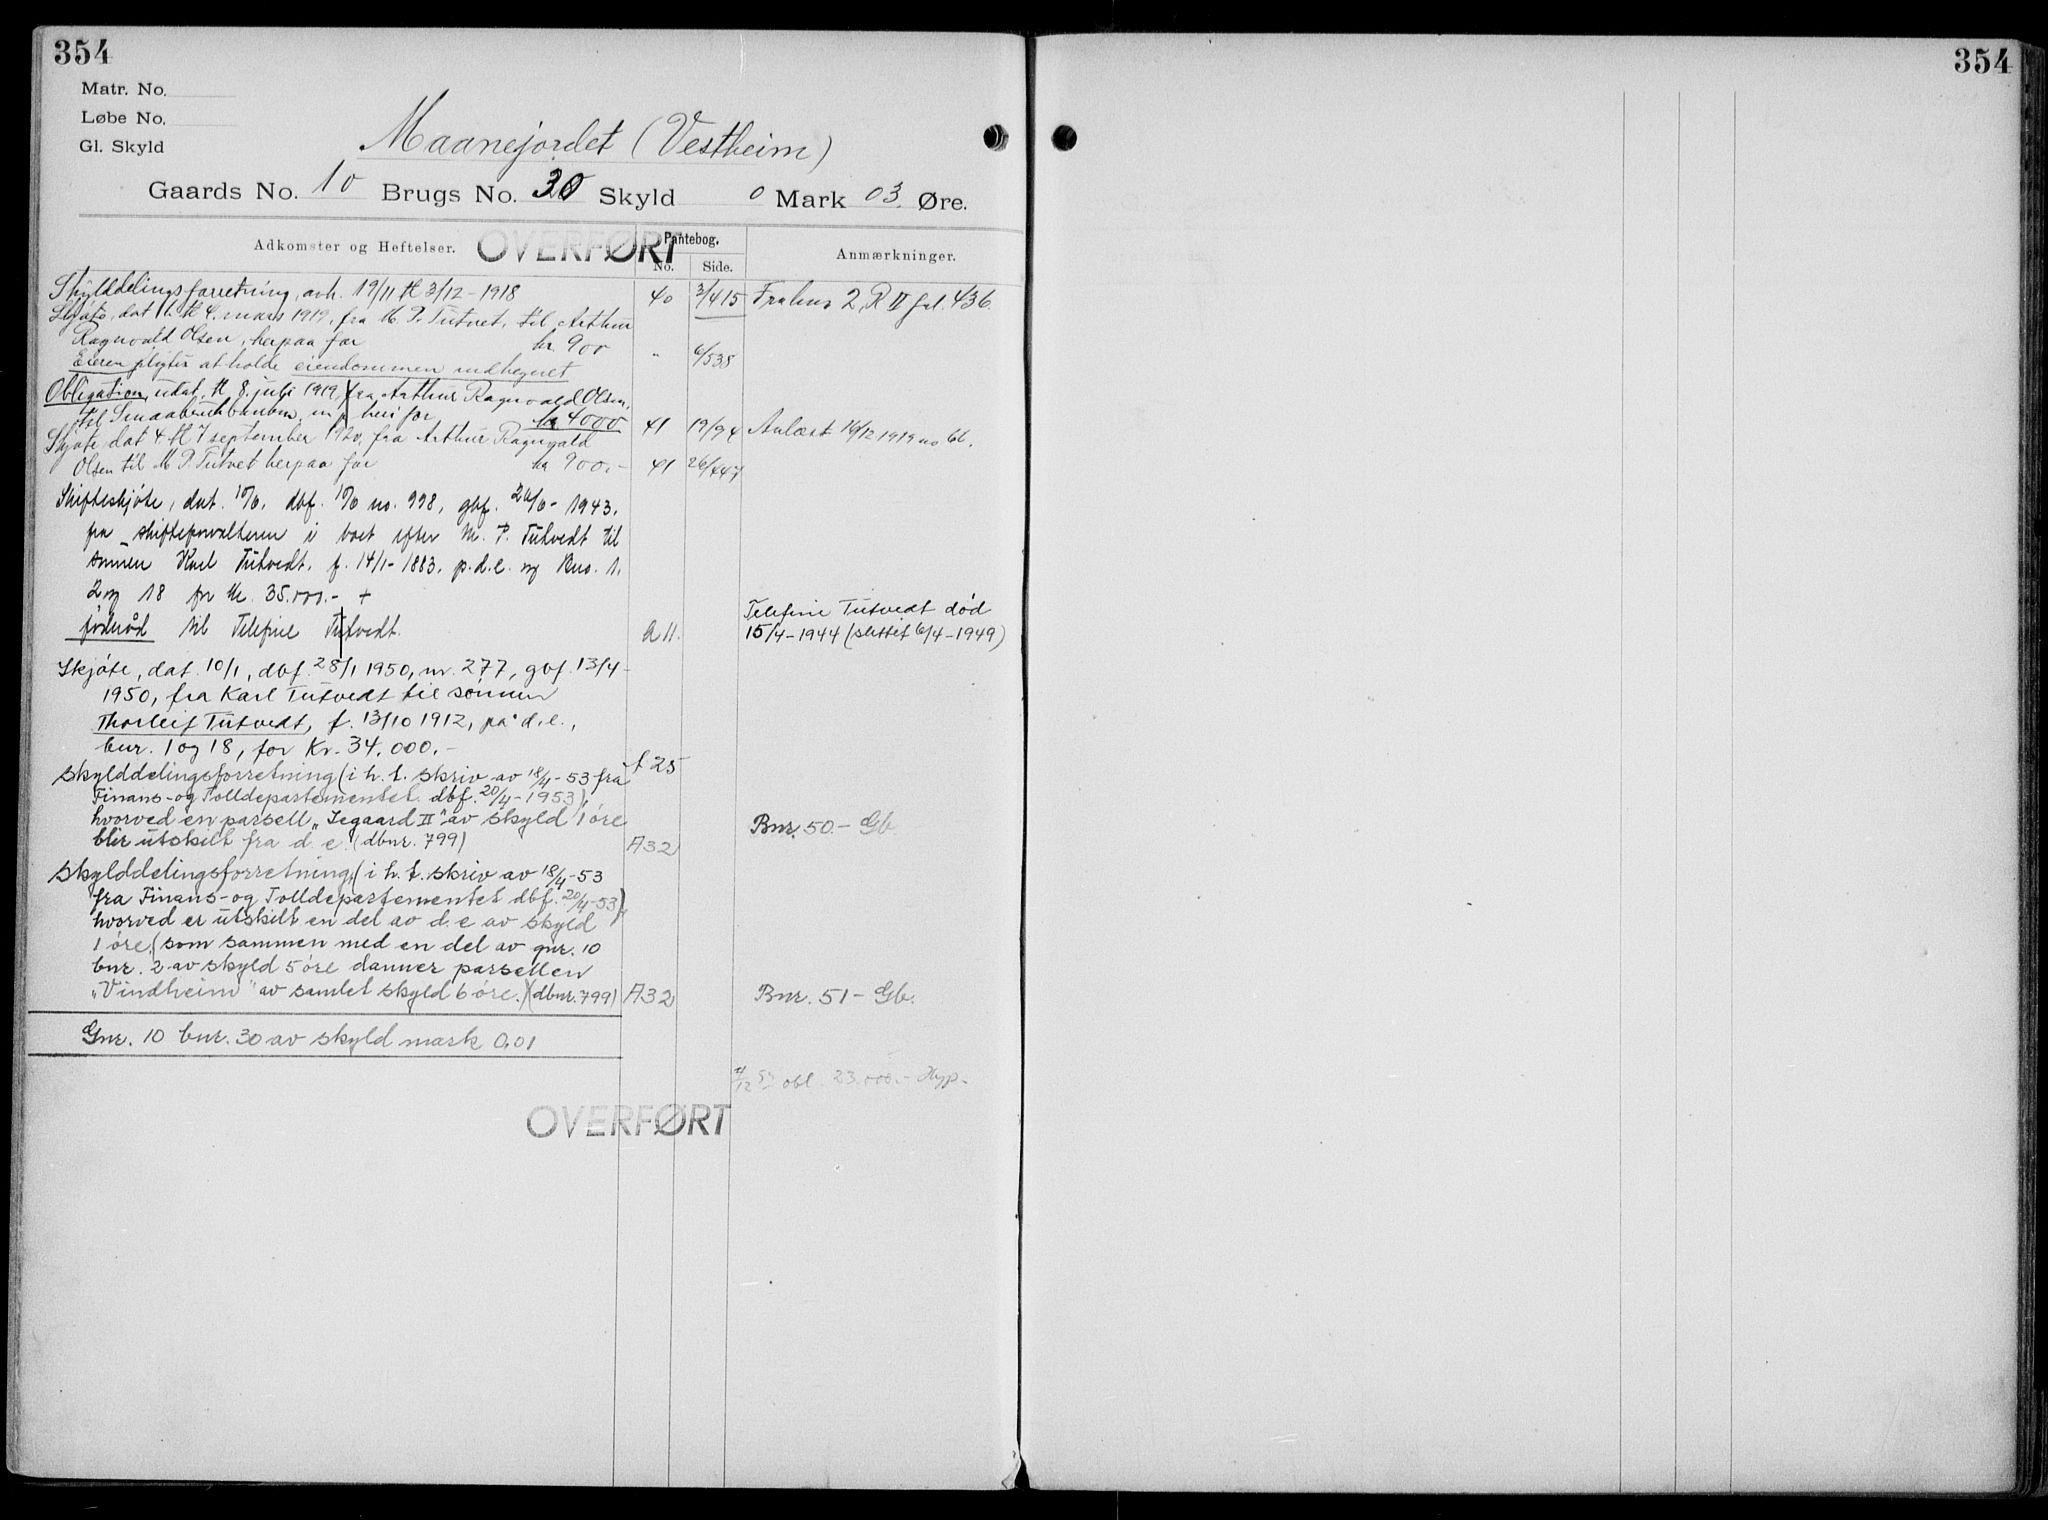 354
354
Matr. No.
Løbe No.
Gl. Skyld
Maanejordet (Vestheim)
Gaards No. 10 Brugs No. 30 Skyld 0 Mark 03. Øre.
Adkomster og Heftelser. OVERFØRT Pantebog. Anmærkninger.
No. Side.
Skylddelingsforretning, avh. 19/11 tl 3/12 - 1918 40 3/415 Fra bnr 2, R II fol. 436.
Skjøte, dat. 1. tl 4. mars 1919, fra M. P. Tutvet, til Arthur
Ragnvald Olsen, herpaa for kr. 900 " 6/538
Eieren pligtis at holde eiendommen indhegnet
Obligation, udat. tl 8. juli 1919, fra Arthur Ragnvald Olsen,
til Smaabrukbanken, m/p heri for kr 4000 41 19/94 Avlæst 16/12 1919 no 66.
Skjøte dat 4 tl 7 september 1920, fra Arthur Ragnvald
Olsen til M P. Tutvet herpaa for kr 900.- 41 26/447
Skifteskjøte, dat. 10/6, dbf. 10/6 no. 998, gbf. 26/6 - 1943,
fra skifteforvalteren i boet efter M. P. Tutvedt til
sønnen Karl Tutvedt, f. 14/1 - 1883, p.d.e. og Bno. 1,
2 og 18 for kr. 35.000.- +
føderåd til Telefine Tutvedt. A 11.
Telefine Tutvedt død
15/4 - 1944 (slettet 6/4 - 1949)
Skjøte, dat. 10/1, dbf. 28/1 1950, nr. 277, gbf. 13/4 -
1950, fra Karl Tutvedt til sønnen
Thorleif Tutvedt, f. 13/10 1912, på d.e.,
bnr. 1 og 18, for Kr. 34.000.-
A 25
Skylddelingsforretning (i h. t. skriv av 18/4 - 53 fra
Finans- og Tolldepartementet dbf. 20/4 - 1953),
hvorved en parsell „Segaard II" av skyld 1 øre Bnr. 50.- Gb.
blir utskilt fra d. e. (dbnr. 799) A32
Skylddelingsforretning, (i h. t. skriv av 18/4 - 53
fra Finans- og Tolldepartementet dbf. 20/4 - 53),
hvorved er utskilt en del av d. e av skyld
1 øre, (som sammen med en del av gnr. 10
bnr. 2 av skyld 5 øre danner parsellen
„Vindheim" av samlet skyld 6 øre.) (dbnr. 799) A32 Bnr. 51 - Gb.
Gnr. 10 bnr. 30 av skyld mark 0,01
obl. 23.000.- Hyp.
OVERFØRT